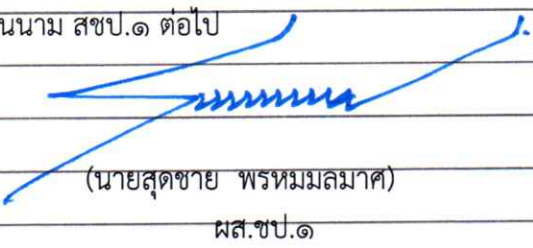 นนาม สชป.๑ ต่อไป
(นายสุดชาย พรหมมลมาศ)
ผส.ชป.๑